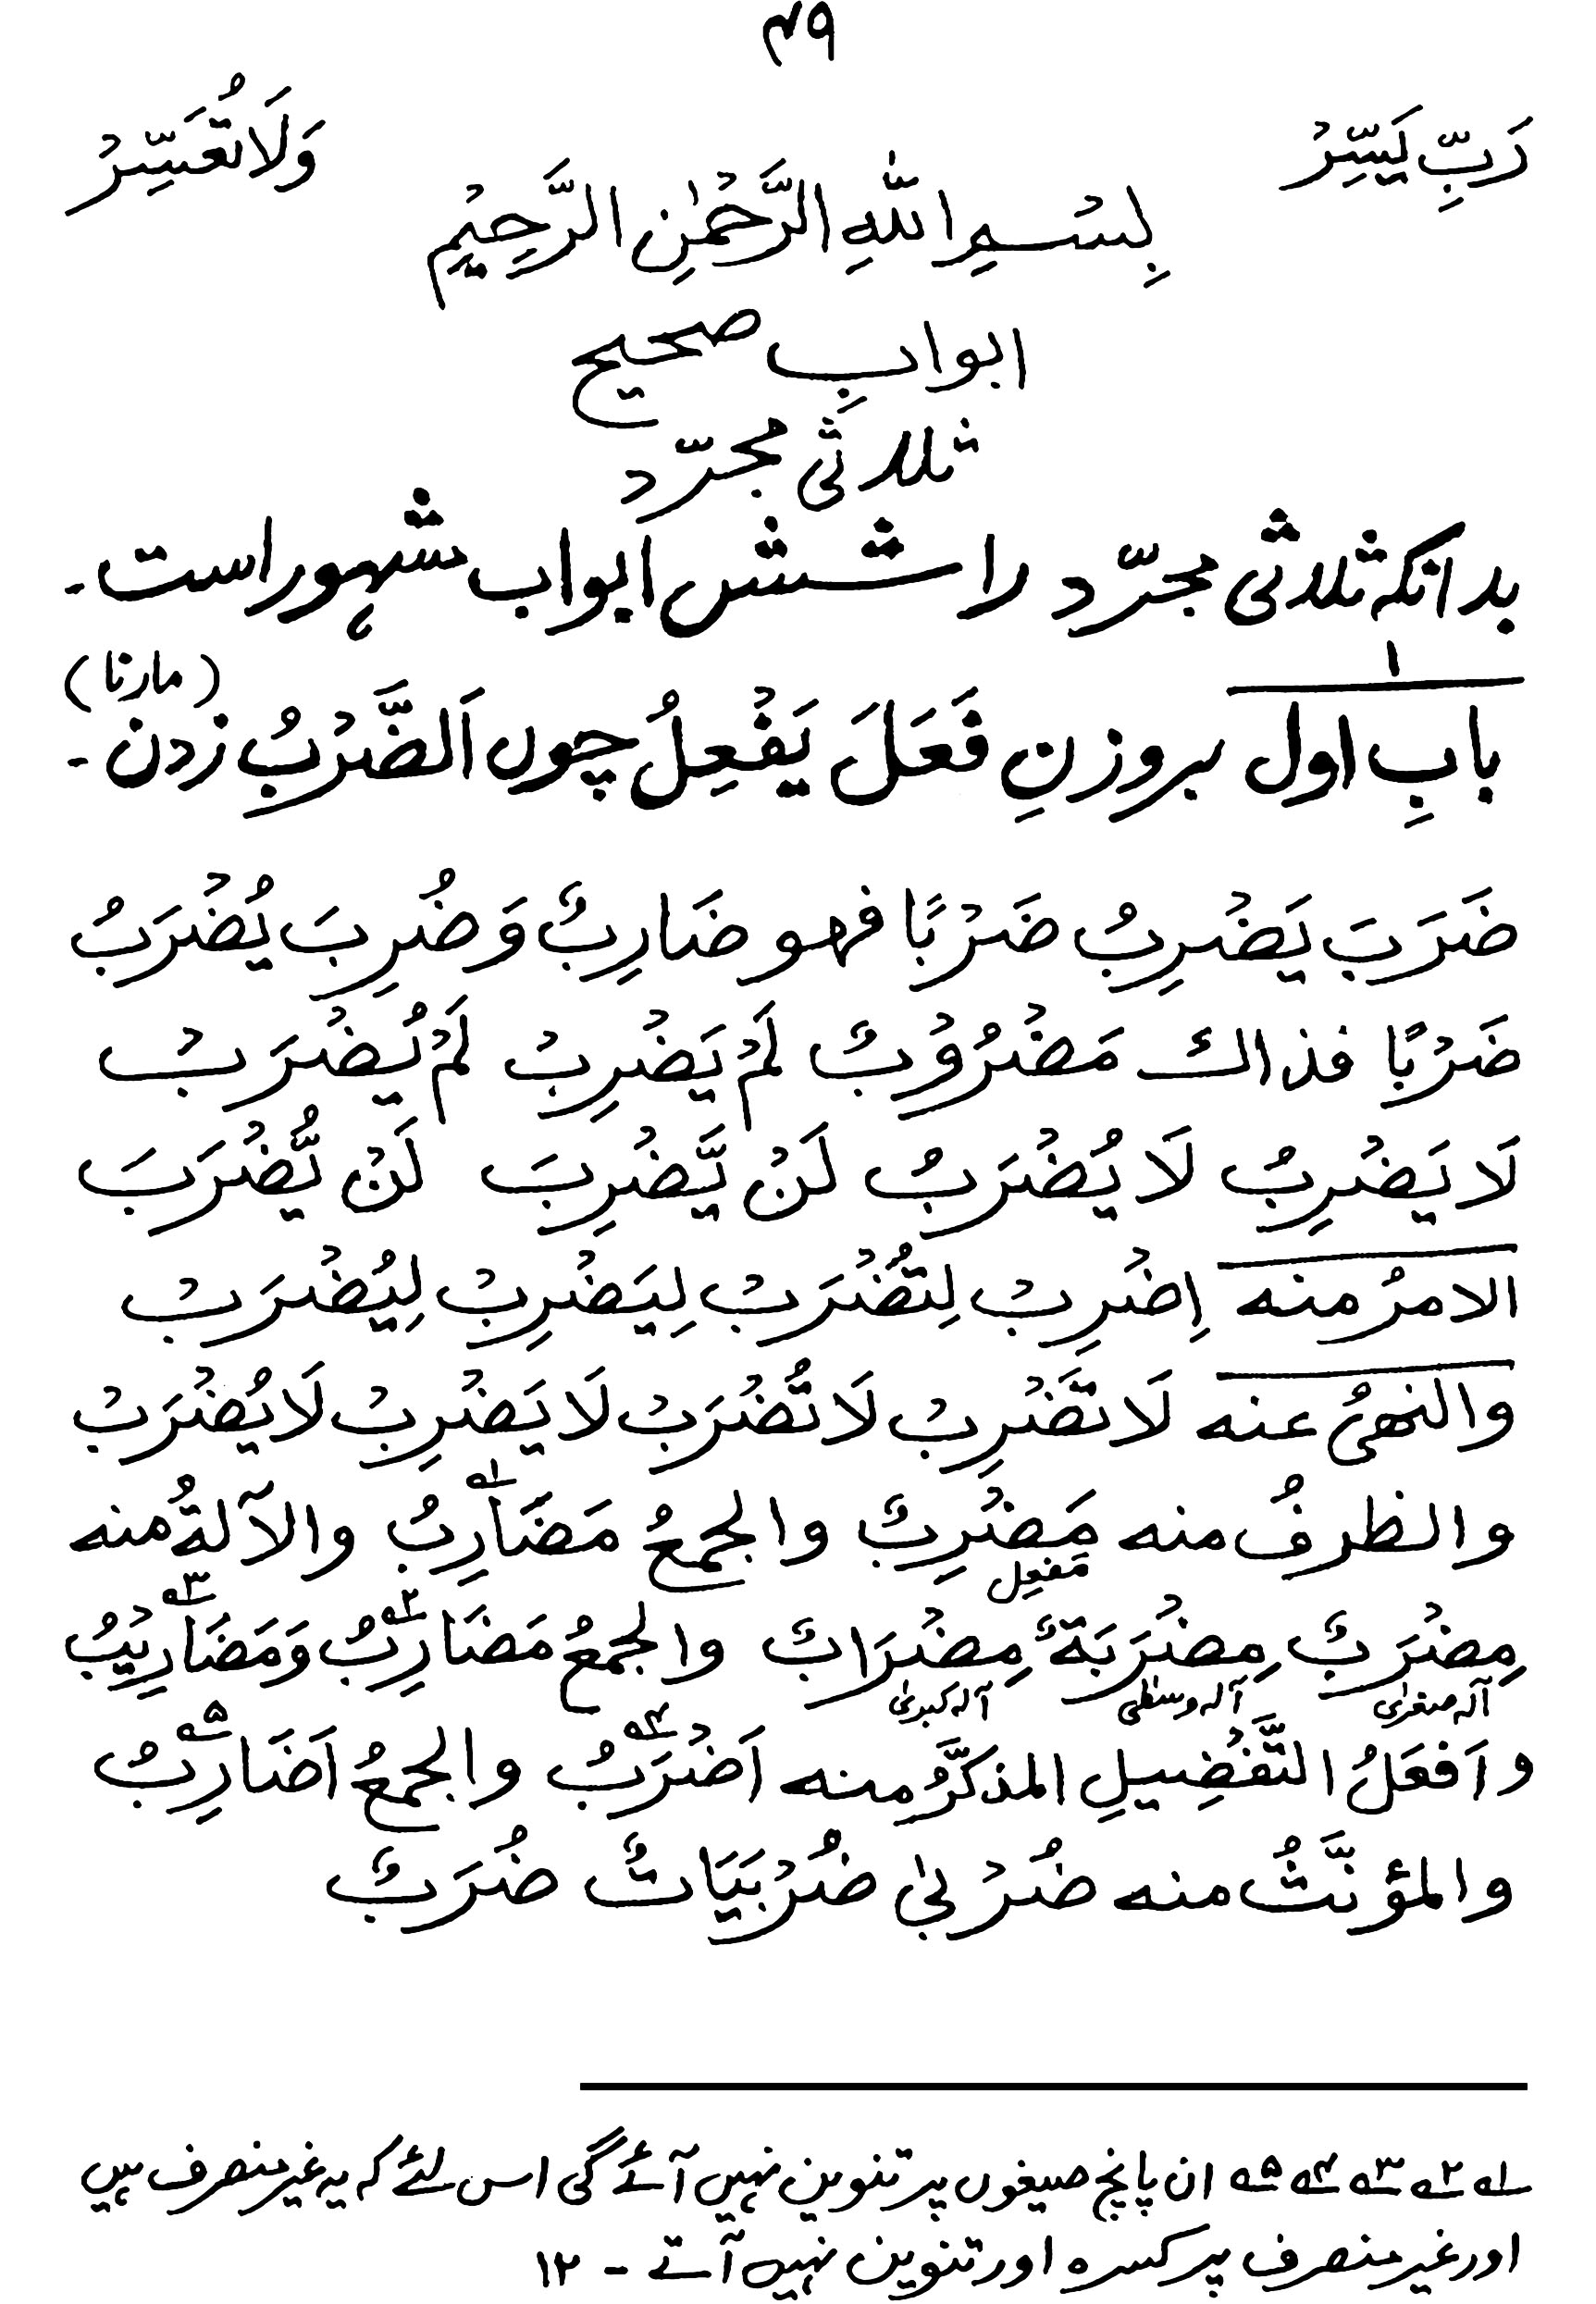 ۴۹
رَبِّ يَسِّرْ وَلَا تُعَسِّرْ
بِسْمِ اللّٰهِ الرَّحْمٰنِ الرَّحِيْمِ
ابوابِ صحیح
ثلاثی مجرّد
بدانکہ ثلاثی مجرّد را شش ابواب شہور است ۔
۱
بابِ اول بروزنِ فَعَلَ يَفْعِلُ چوں اَلضَّرْبُ زدن ۔ (مارنا)
ضَرَبَ يَضْرِبُ ضَرْبًا فهو ضَارِبٌ وَ ضُرِبَ يُضْرَبُ
ضَرْبًا فذاك مَضْرُوْبٌ لَمْ يَضْرِبْ لَمْ يُضْرَبْ
لَا يَضْرِبُ لَا يُضْرَبُ لَنْ يَّضْرِبَ لَنْ يُّضْرَبَ
الامرُ منه اِضْرِبْ لِتُضْرَبْ لِيَضْرِبْ لِيُضْرَبْ
والنهىُ عنه لَا تَضْرِبْ لَا تُضْرَبْ لَا يَضْرِبْ لَا يُضْرَبْ
والظرفُ منه مَضْرِبٌ والجمعُ مَضَارِبُ ؁۱ والآلةُ منه
مَفعِل
مِضْرَبٌ مِضْرَبَةٌ مِضْرَابٌ والجمعُ مَضَارِبُ ؁۲ وَمَضَارِيْبُ ؁۳
آلہ صغریٰ آلہ وسطٰی آلہ کبریٰ
و اَفعَلُ التَّفْضِيلِ المذكَّرُ منه اَضْرَبُ ؁۴ والجمعُ اَضَارِبُ ؁۵
والمؤنَّثُ منه ضُرْبیٰ ضُرْبَيَاتٌ ضُرَبٌ
؁۱ ؁۲ ؁۳ ؁۴ ؁۵ ان پانچ صیغوں پر تنوین نہیں آئے گی اس لئے کہ یہ غیر منصرف ہیں
اور غیر منصرف پر کسرہ اور تنوین نہیں آتے ۔ ۱۲